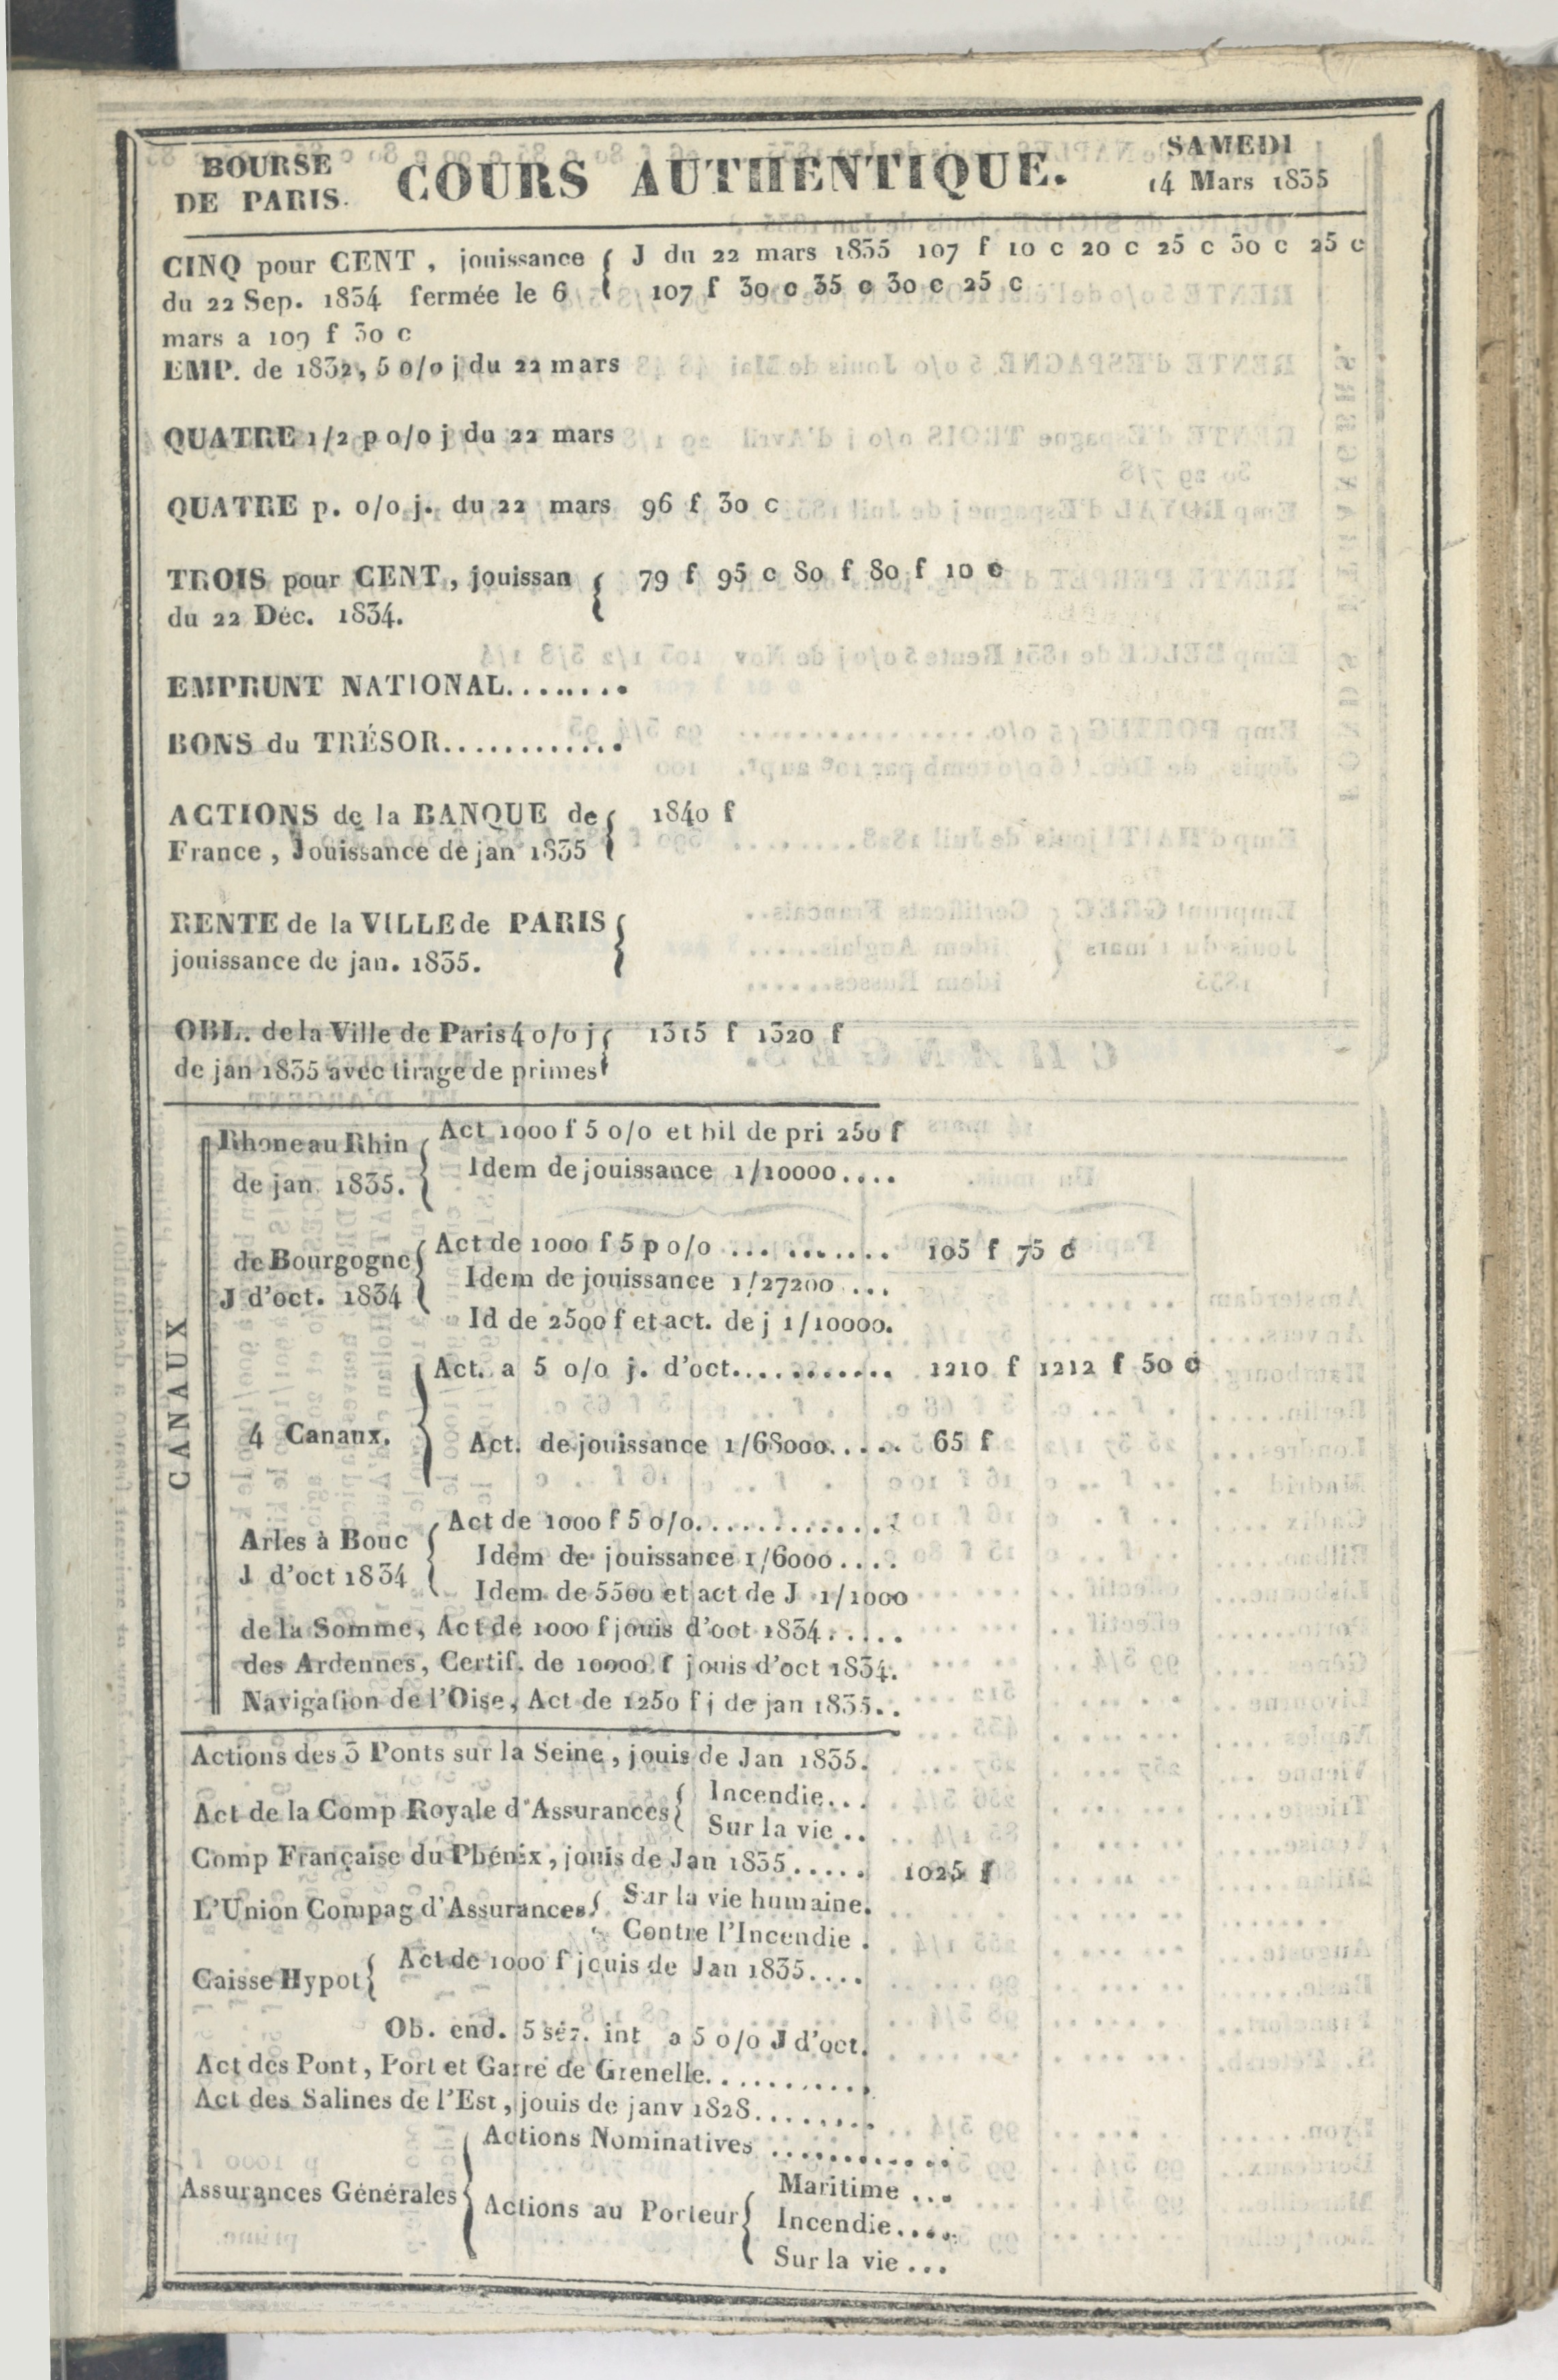 BOURSE
DE PARIS.
COURS AUTHENTIQUE.
SAMEDI
14 Mars 1835
CINQ pour CENT, jouissance { J du 22 mars 1835 107 f 10 c 20 c 25 c 30 c 25 c
du 22 Sep. 1834 fermée le 6 107 f 30 c 35 c 30 c 25 c
mars a 109 f 30 c
EMP. de 1832, 5 o/o j du 22 mars
QUATRE 1/2 p o/o j du 22 mars
QUATRE p. o/o j. du 22 mars 96 f 30 c
TROIS pour CENT, jouissan { 79 f 95 c 80 f 80 f 10 c
du 22 Déc. 1834.
EMPRUNT NATIONAL........
BONS du TRÉSOR............
ACTIONS de la BANQUE de { 1840 f
France, Jouissance de jan 1835
RENTE de la VILLE de PARIS {
jouissance de jan. 1835.
OBL. de la Ville de Paris 4 o/o j { 1315 f 1320 f
de jan 1835 avec tirage de primes
CANAUX
Rhone au Rhin { Act 1000 f 5 o/o et bil de pri 250 f
de jan. 1835. Idem de jouissance 1/10000....
de Bourgogne { Act de 1000 f 5 p o/o ........... 105 f 75 c
J d'oct. 1834 Idem de jouissance 1/27200 ...
Id de 2500 f et act. de j 1/10000.
Act. a 5 o/o j. d'oct............ 1210 f 1212 f 50 c
4 Canaux. { Act. de jouissance 1/68000..... 65 f
Arles à Bouc { Act de 1000 f 5 o/o..............
J d'oct 1834 Idem de jouissance 1/6000....
Idem de 5500 et act de J 1/1000
de la Somme, Act de 1000 f jouis d'oct 1834.....
des Ardennes, Certif. de 10000 f jouis d'oct 1834.
Navigation de l'Oise, Act de 1250 f j de jan 1835..
Actions des 3 Ponts sur la Seine, jouis de Jan 1835.
Act de la Comp Royale d'Assurances { Incendie...
Sur la vie ..
Comp Française du Phénix, jouis de Jan 1835..... 1025 f
L'Union Compag d'Assurances { Sur la vie humaine.
Contre l'Incendie .
Caisse Hypot { Act de 1000 f jouis de Jan 1835....
Ob. end. 5 sér. int a 5 o/o J d'oct.
Act des Pont, Port et Garre de Grenelle...........
Act des Salines de l'Est, jouis de janv 1828........
Assurances Générales { Actions Nominatives ............
Actions au Porteur { Maritime ...
Incendie.....
Sur la vie ...